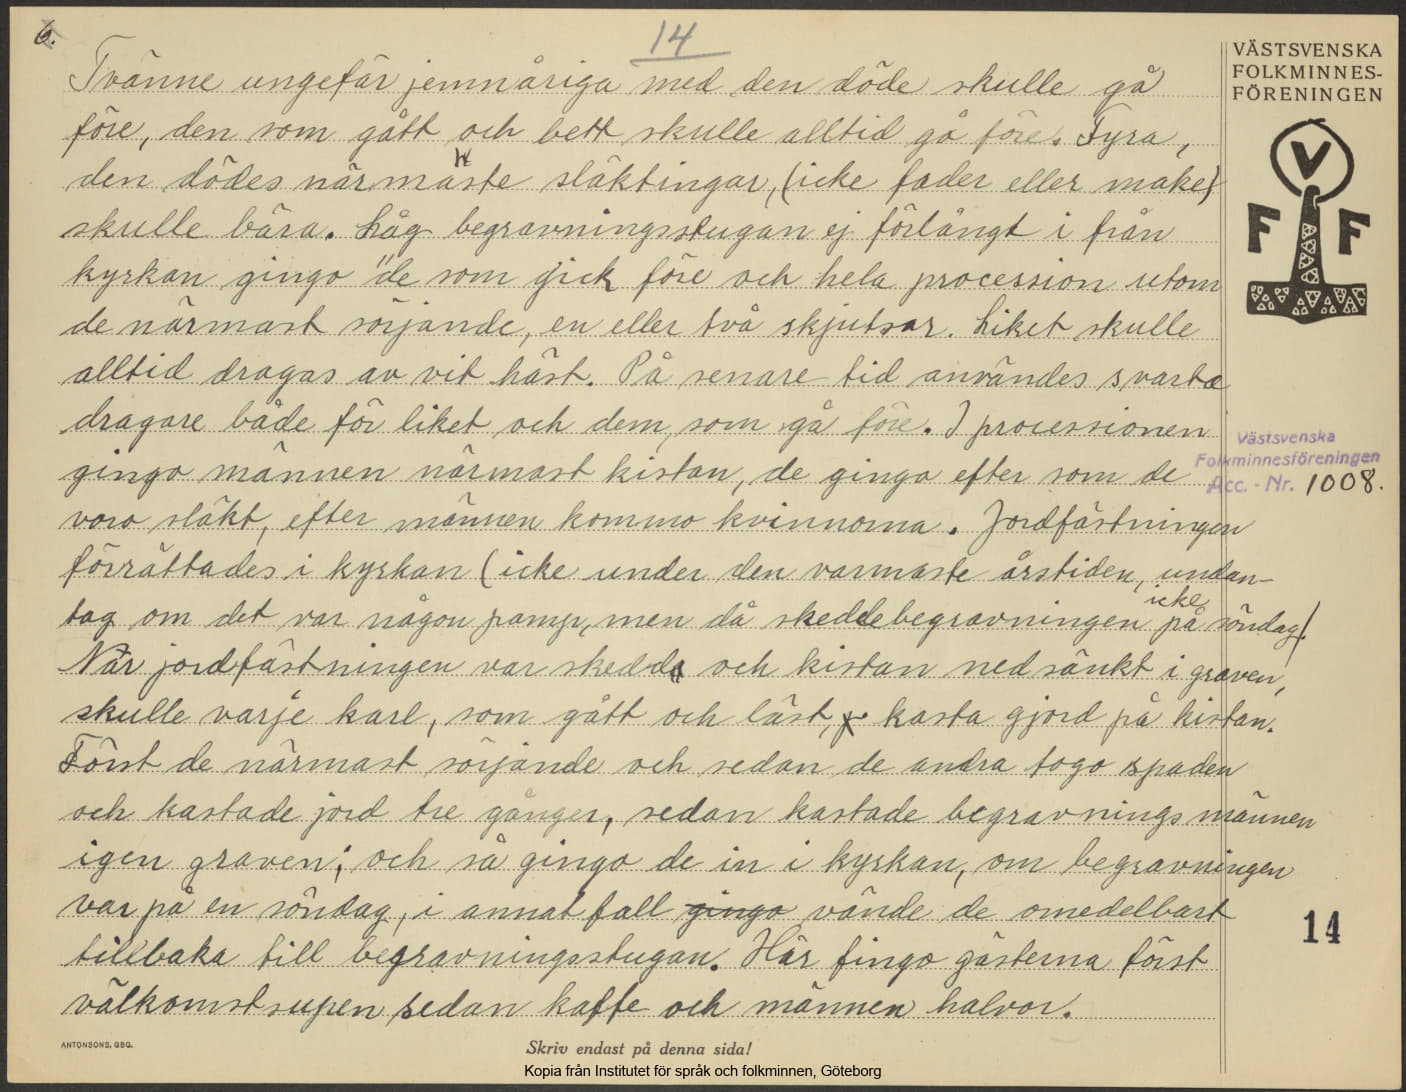 6.
14
Tvänne ungefär jemnåriga med den döde skulle gå
före, den som gått och bett skulle alltid gå före. Fyra,
den dödes närmaste släktingar, (icke fader eller make)
skulle bära. Låg begravningsstugan ej förlångt i från
kyrkan gingo "de som gick före och hela procession utom
de närmast sörjande, en eller två skjutsar. Liket skulle
alltid dragas av vit häst. På senare tid användes svarta
dragare både för liket och dem, som gå före. I processionen
gingo männen närmast kistan, de gingo efter som de
voro släkt, efter männen kommo kvinnorna. Jordfästningen
förrättades i kyrkan (icke under den varmaste årstiden, undan-
tag om det var någon pamp, men då skedde begravningen icke på söndag).
När jordfästningen var skedd och kistan nedsänkt i graven,
skulle varje karl, som gått och läst, kasta gjord på kistan.
Först de närmast sörjande och sedan de andra togo spaden
och kastade jord tre gånger, sedan kastade begravningsmännen
igen graven; och så gingo de in i kyrkan, om begravningen
var på en söndag, i annat fall gingo vände de omedelbart
tillbaka till begravningsstugan. Här fingo gästerna först
välkomstsupen sedan kaffe och männen halvor.
VÄSTSVENSKA
FOLKMINNES-
FÖRENINGEN
V
F F
Västsvenska
Folkminnesföreningen
Acc. - Nr. 1008.
14
ANTONSONS, GBG.
Skriv endast på denna sida!
Kopia från Institutet för språk och folkminnen, Göteborg